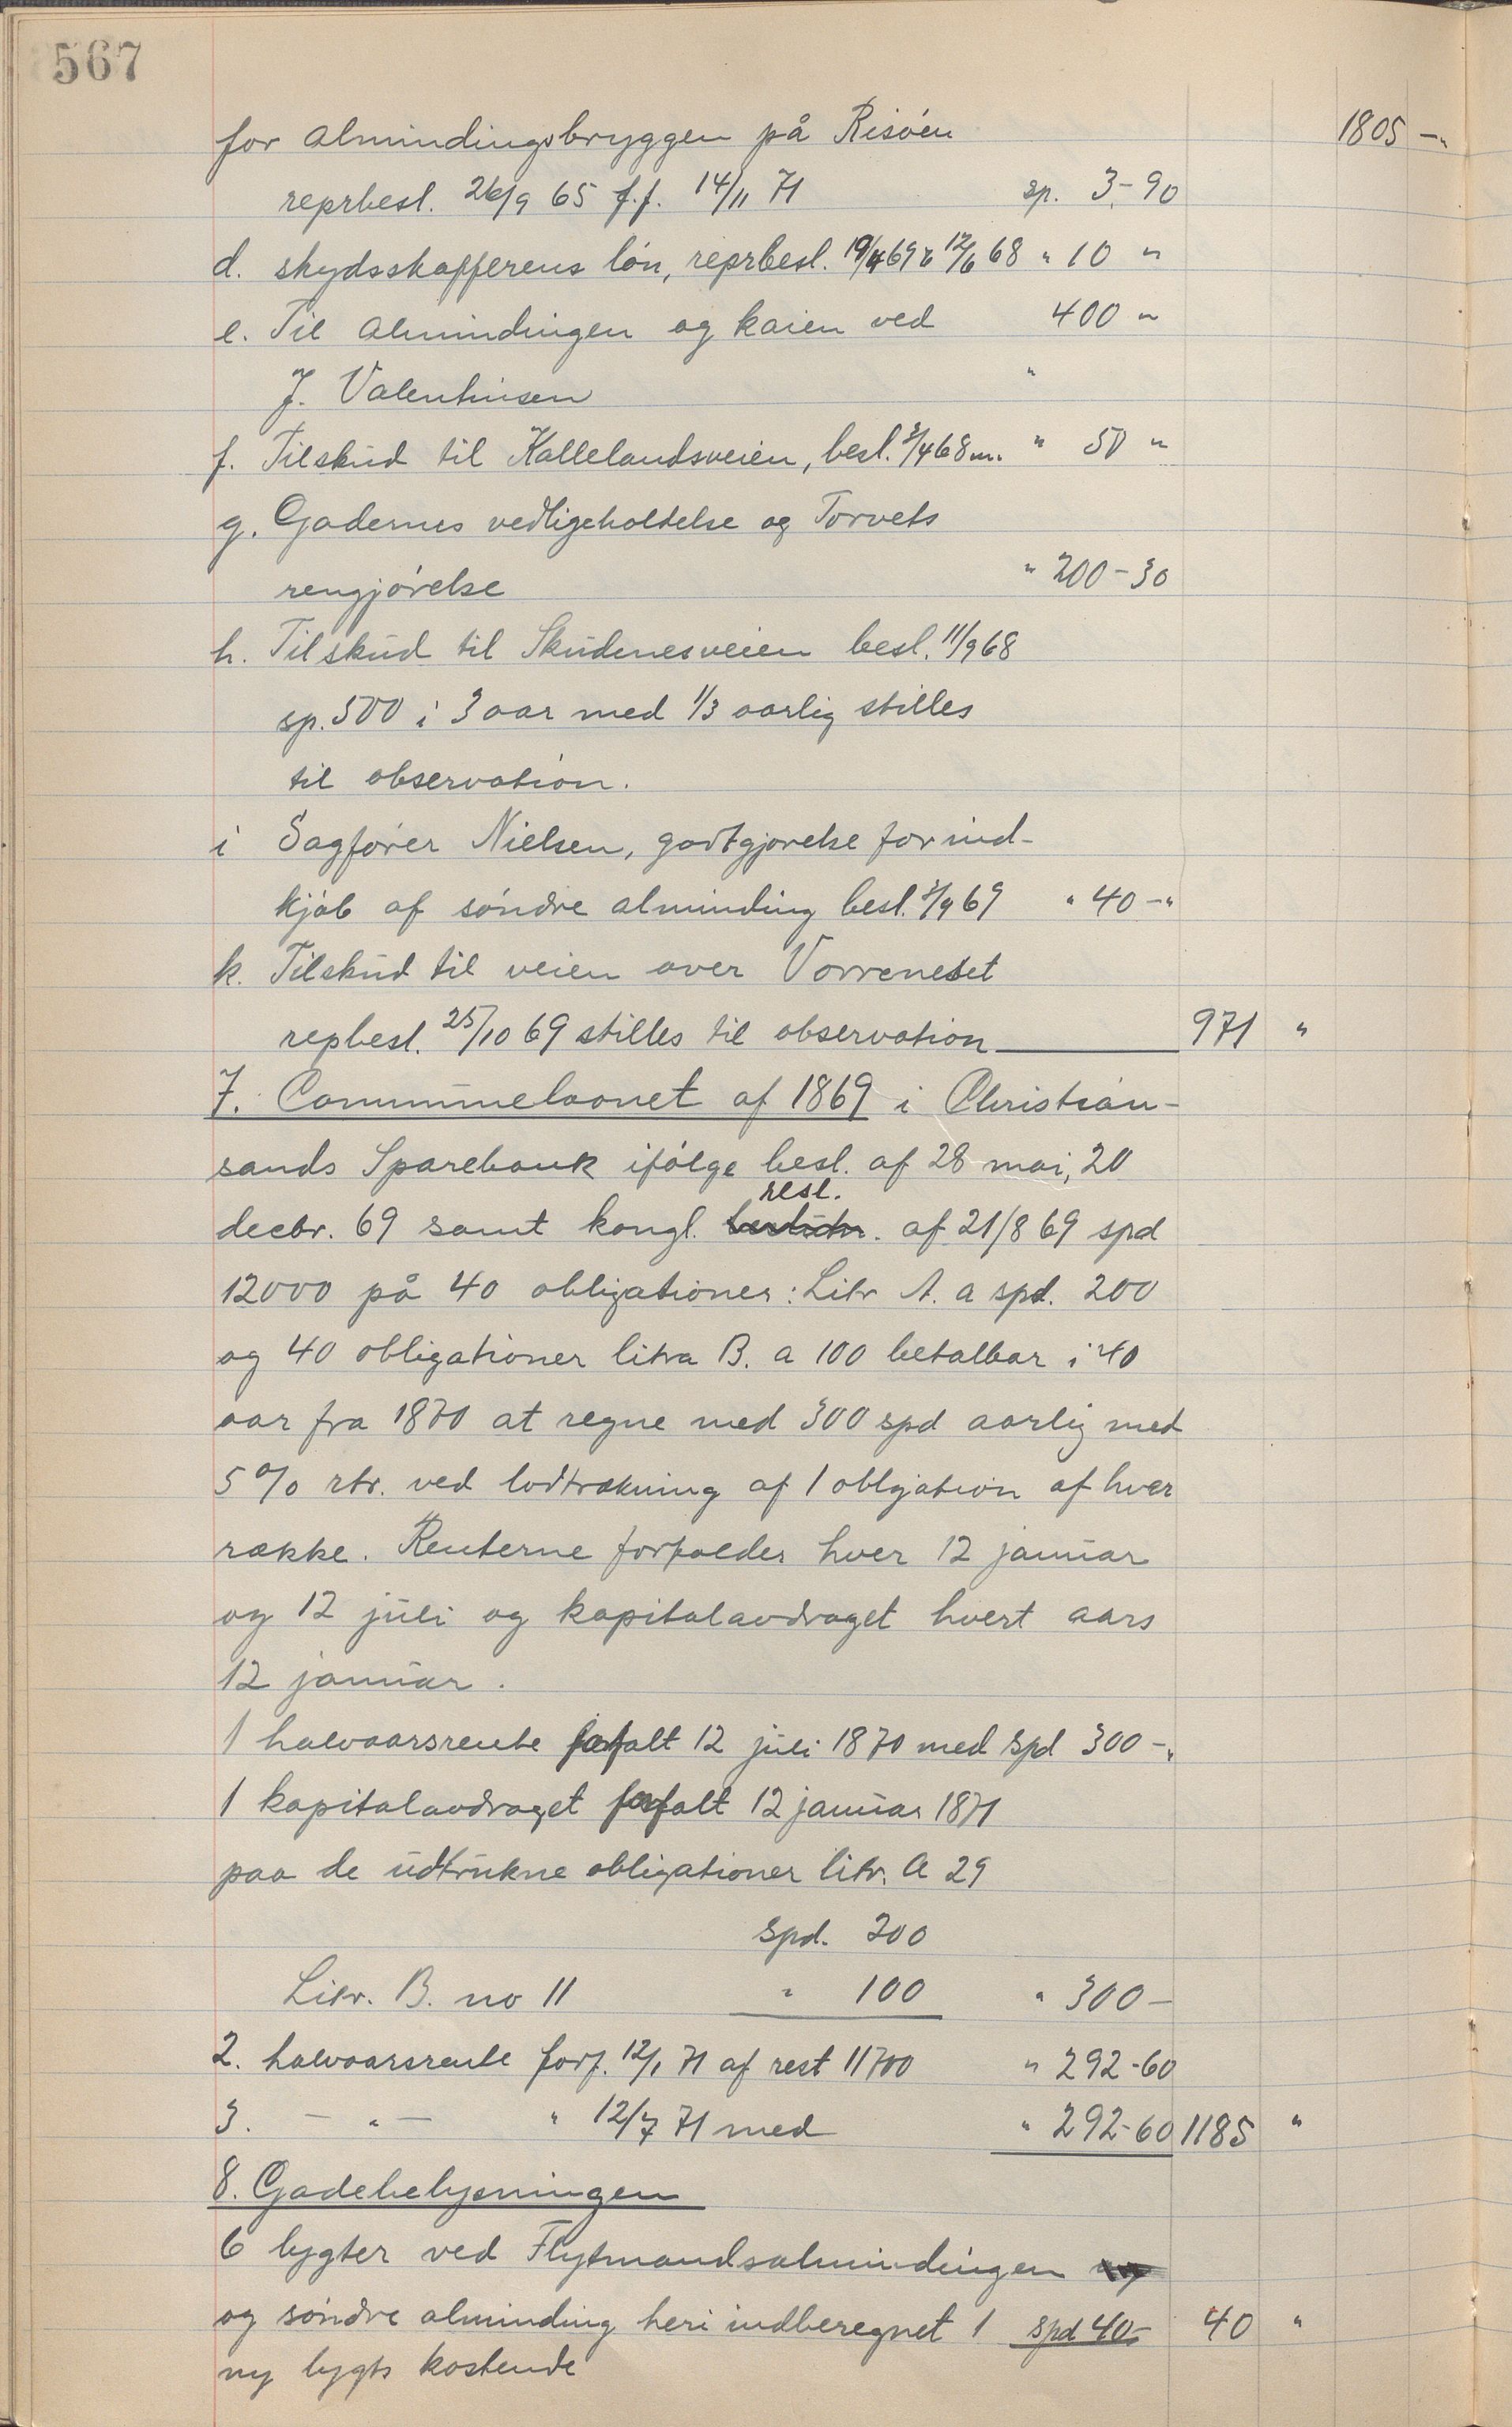 567
for almindingsbryggen på Risøen 1805 -"
reprbesl. 26/9 65 f.f. 14/11 71 sp. 3-90
d. skydsskafferens løn, reprbesl. 19/4 69 & 12/6 68 " 10 "
e. Til almindingen og kaien ved 400 "
J. Valentinsen "
f. Tilskud til Kallelandsveien, besl. 3/4 68 m. " 50 "
g. Gadernes vedligeholtelse og Torvets
rengjørelse " 200-30
h. Tilskud til Skudenesveien besl. 11/9 68
sp. 500 i 3 aar med 1/3 aarlig stilles
til observation.
i Sagfører Nielsen, godtgjørelse for ind-
kjøb af søndre alminding besl. 3/9 69 " 40-"
k. Tilskud til veien over Vorreneset
repbesl. 25/10 69 stilles til observation 971 "
7. Communelaanet af 1869 i Christian-
sands Sparebank ifølge besl. af 28 mai, 20
decbr. 69 samt kongl. resl. af 21/8 69 spd
12000 på 40 obligationer: Litr A. a spd. 200
og 40 obligationer litra B. a 100 betalbar i 40
aar fra 1870 at regne med 300 spd aarlig med
5 % rtr. ved lodtrækning af 1 obligation af hver
række. Renterne forfalder hver 12 januar
og 12 juli og kapitalavdraget hvert aars
12 januar.
1 halvaarsrente forfalt 12 juli 1870 med spd 300-"
1 kapitalavdraget forfalt 12 januar 1871
paa de udtrukne obligationer litr. A 29
spd. 200
Litr. B. no 11 " 100 " 300-
2. halvaarsrente forf. 12/1 71 af rest 11700 " 292-60
3. - " - " 12/7 71 med " 292-60 1185 "
8. Gadebelysningen
6 lygter ved Flytmandsalmindingen
og søndre alminding heri indberegnet 1 spd 40- 40 "
ny lygts kostende